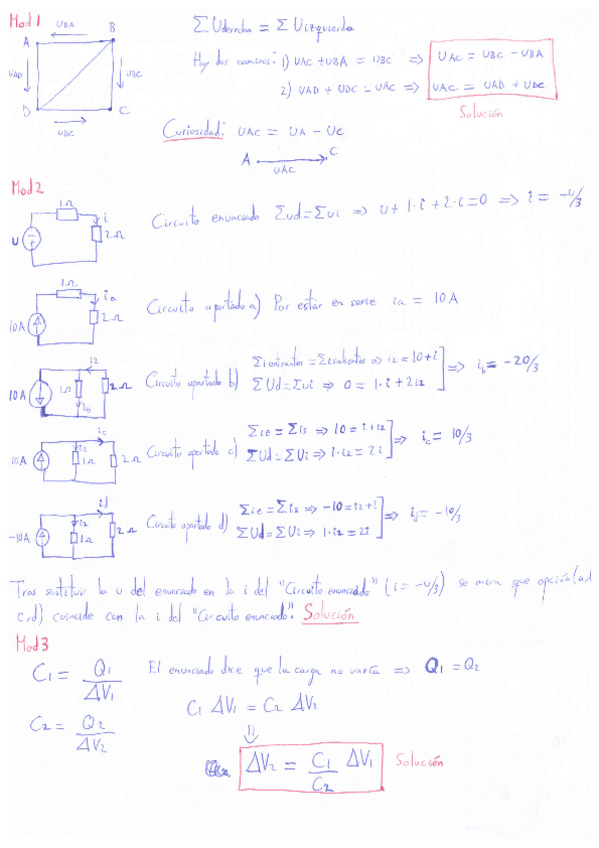 Mod 1
UBA
A B
UAD UBC
D C
UDC
Σ Uderecha = Σ Uizquierda
Hay dos caminos: 1) UAC + UBA = UBC ⇒ UAC = UBC - UBA
2) UAD + UDC = UAC ⇒ UAC = UAD + UDC
Solución
Curiosidad: UAC = UA - UC
A C
UAC
Mod 2
1Ω
i
U 2Ω
Circuito enunciado Σud = Σui ⇒ u + 1·i + 2·i = 0 ⇒ i = -u/3
1Ω
ia
10A 2Ω
Circuito apartado a) Por estar en serie ia = 10A
i2
10A 1Ω 2Ω
ib
Circuito apartado b) Σientrantes = Σisalientes ⇒ i2 = 10 + i
ΣUd = Σui ⇒ 0 = 1·i + 2i2 ⇒ ib = -20/3
ic
i2
10A 1Ω 2Ω
Circuito apartado c) Σie = Σis ⇒ 10 = i + i2
ΣUd = ΣUi ⇒ 1·i2 = 2i ⇒ ic = 10/3
id
i2
-10A 1Ω 2Ω
Circuito apartado d) Σie = Σis ⇒ -10 = i2 + i
ΣUd = ΣUi ⇒ 1·i2 = 2i ⇒ id = -10/3
Tras sustituir la u del enunciado en la i del "Circuito enunciado" (i = -u/3) se mira que opción (a,b
c,d) coincide con la i del "Circuito enunciado". Solución
Mod 3
C1 = Q1 / ΔV1
El enunciado dice que la carga no varía ⇒ Q1 = Q2
C2 = Q2 / ΔV2
C1 ΔV1 = C2 ΔV2
⇓
ΔV2 = C1 / C2 ΔV1 Solución